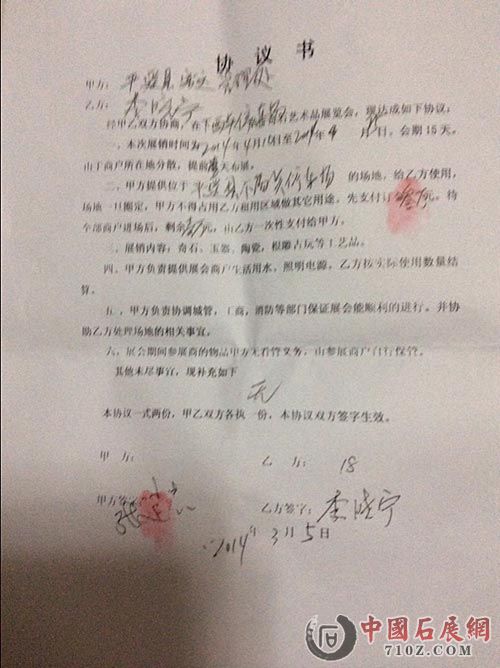 协 议 书
甲方：平遥县 管理处
乙方：李晓宁
经甲乙双方协商，在 石艺术品展览会，现达成如下协议：
一、本次展销时间为2014年4月 日至2014年4月 日。会期15天。
由于商户所在地分散，提前 天布展。
二、甲方提供位于平遥县 停车场的场地，给乙方使用，
场地一旦圈定，甲方不得占用乙方租用区域做其它用途，先支付订金 元。待
全部商户进场后，剩余 元，由乙方一次性支付给甲方。
三、展销内容：奇石、玉器、陶瓷，根雕古玩等工艺品。
四、甲方负责提供展会商户生活用水，照明电源。乙方按实际使用数量结
算。
五、甲方负责协调城管，工商，消防等部门保证展会能顺利的进行。并协
助乙方处理场地的相关事宜。
六、展会期间参展商的物品甲方无看管义务，由参展商户自行保管。
其他未尽事宜，现补充如下
无
本协议一式两份，甲乙双方各执一份，本协议双方签字生效。
甲 方： 乙 方： 18
甲方签字： 乙方签字：李晓宁
2014年3月5日
中國石展網
710Z.COM